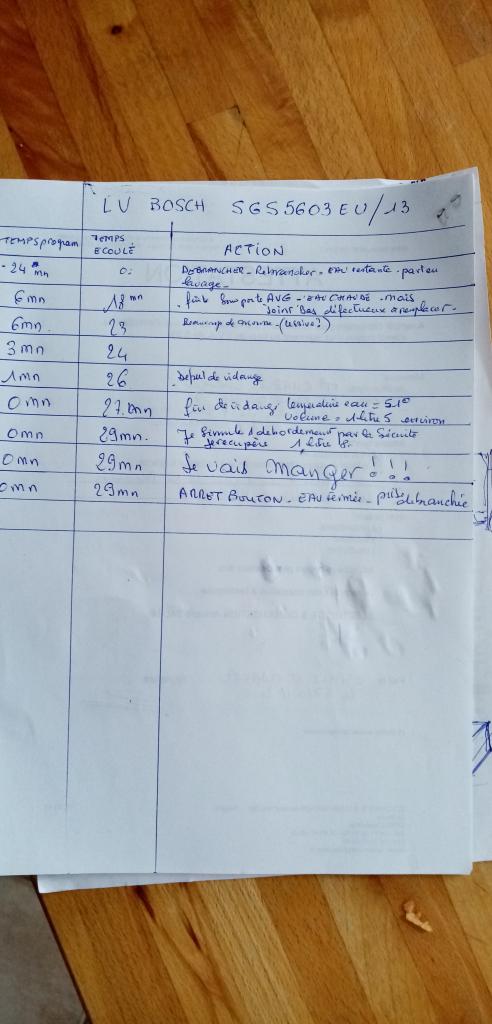 LV BOSCH SGS5603EU/13
TEMPS program TEMPS ECOULÉ ACTION
-24 mn 0 DEBRANCHER - Rebrancher = EAU restante - part en
lavage -
6mn 18 mn fuite bas porte AVG - EAU CHAUDE - mais
Joint Bas défectueux à remplacer -
6mn. 23 Beaucoup de mousse - (lessive?)
3mn 24
1mn 26 . Début de vidange
0mn 27. mn fin de vidange température eau = 51°
volume = 1 litre 5 environ
0mn 29mn. Je simule 1 débordement par la Sécurité
je récupère 1 litre
0mn 29mn Je vais manger!!!
0mn 29mn ARRET BOUTON - EAU fermée - prise débranchée